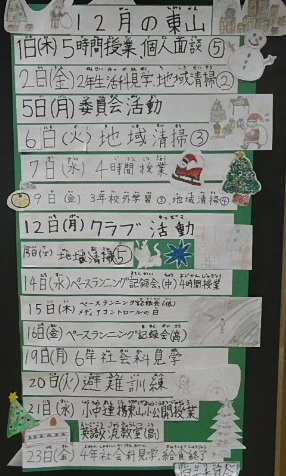 12月の東山
1日(木)5時間授業 個人面談⑤
2日(金)2年生活科見学 地域清掃②
5日(月)委員会活動
6日(火)地域清掃③
7日(水)4時間授業
9日(金)3年校外学習③、地域清掃④
12日(月)クラブ活動
13日(火)地域清掃⑤
14日(水)ペースランニング記録会(中)4時間授業
15日(木)ペースランニング記録会(低)
メディアコントロールの日
16日(金)ペースランニング記録会(高)
19日(月)6年社会科見学
20日(火)避難訓練
21日(水)小中連携東山小公開授業
英語交流教室(高)
23日(金)4年社会科見学 給食終了